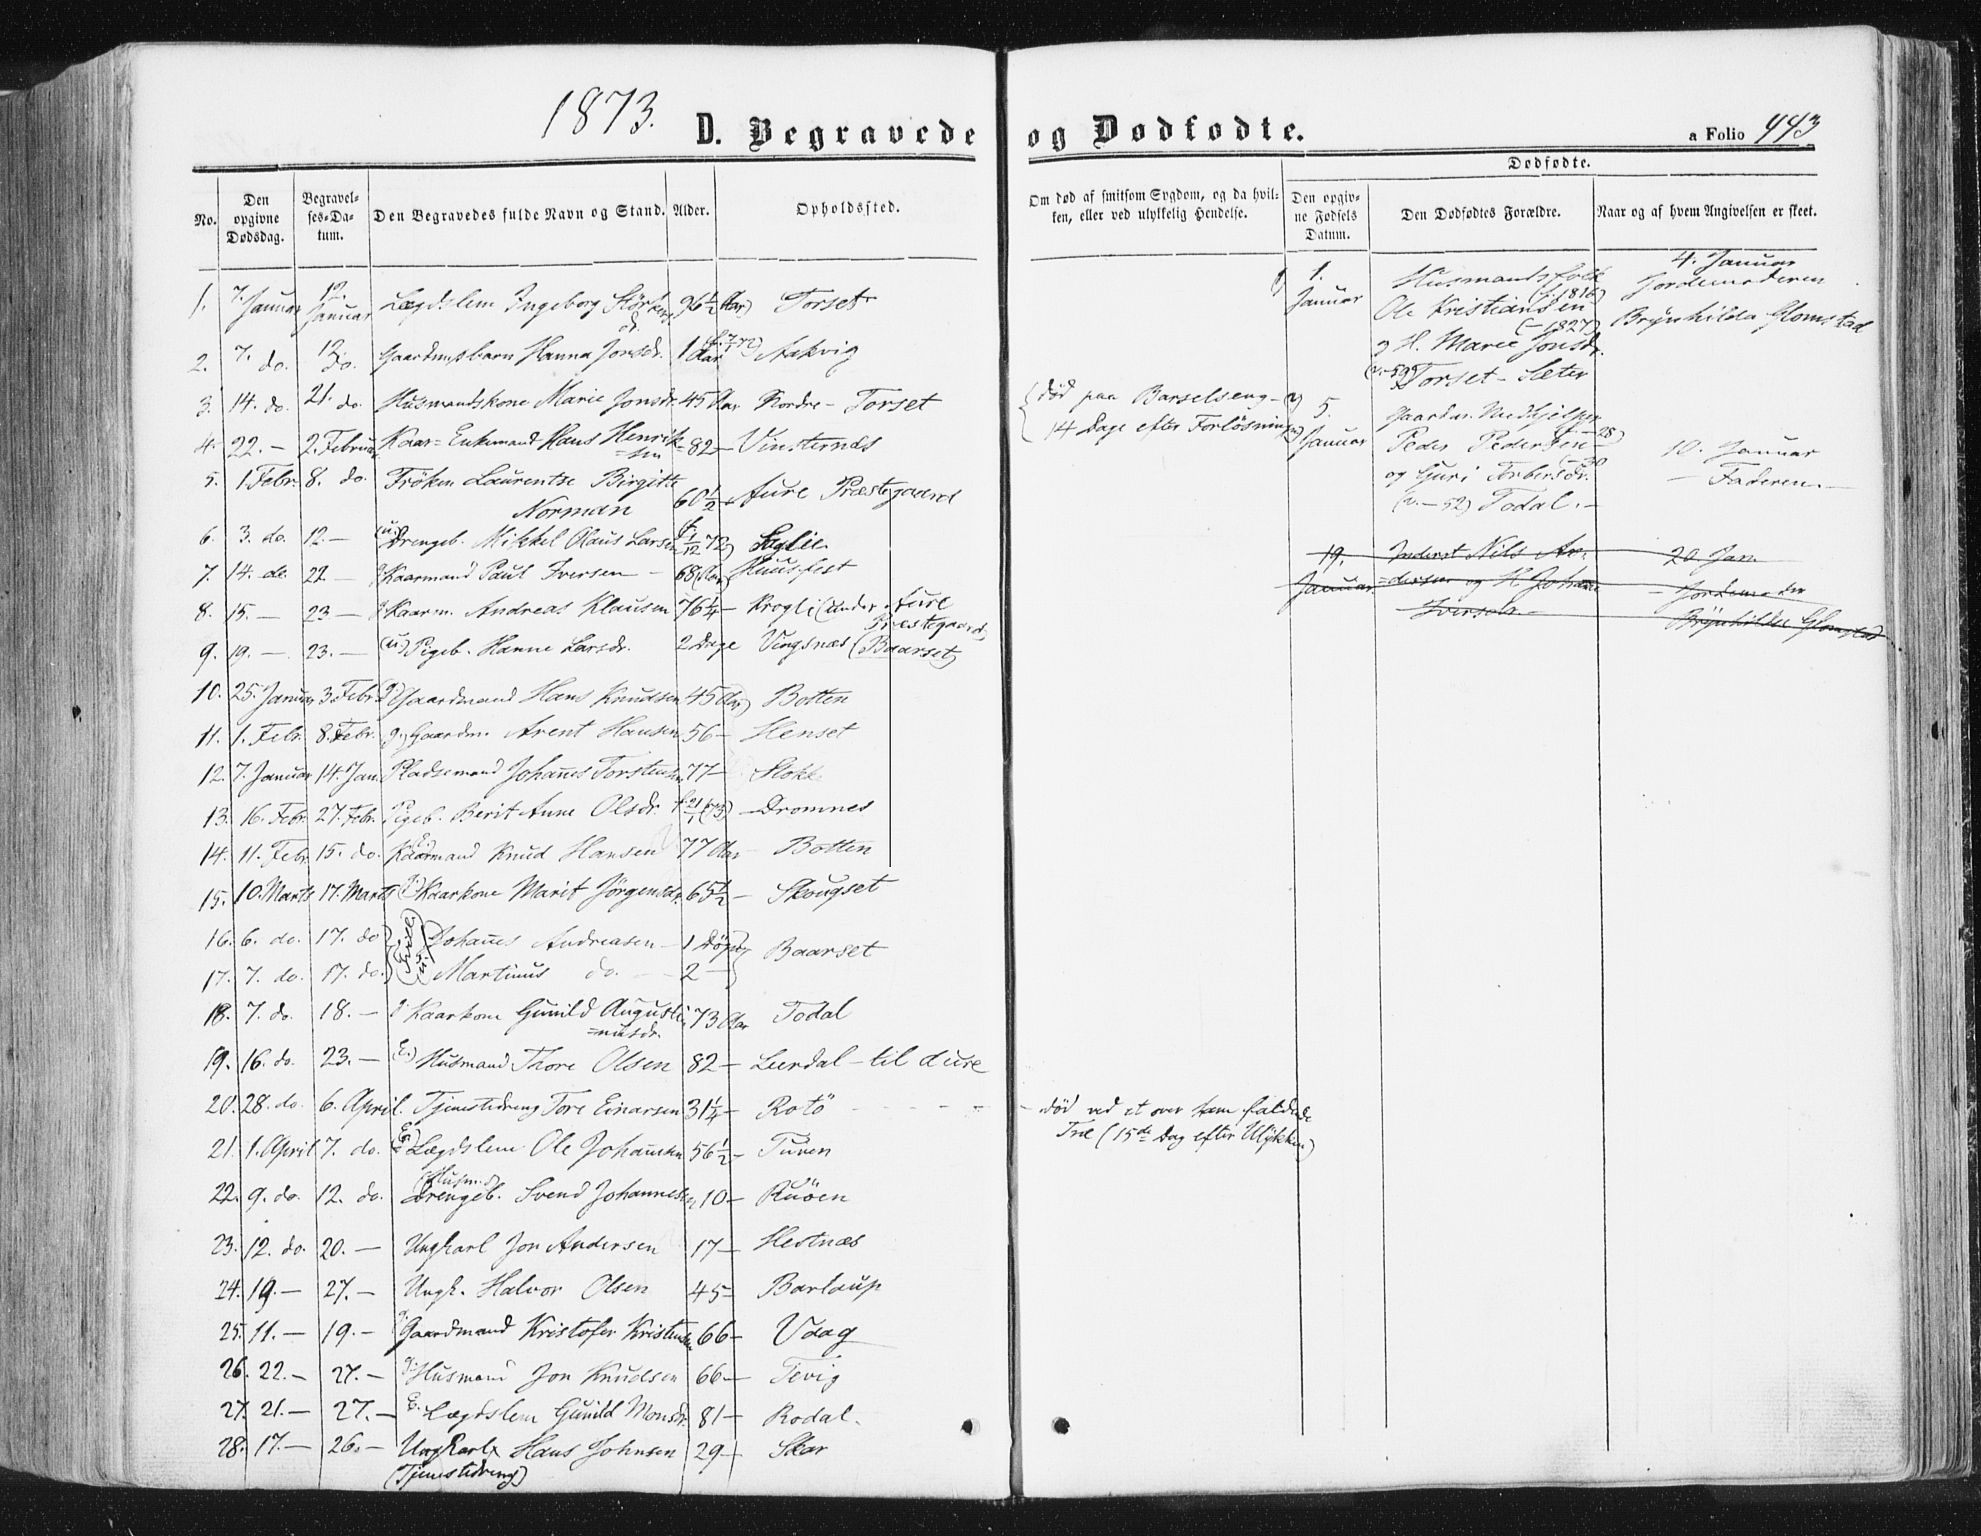 1873.
D. Begravede og Dødfødte.
a Folio 443
No.
Den opgivne Dødsdag.
Begravelses-Datum.
Den Begravedes fulde Navn og Stand.
Alder.
Opholdssted.
Om død af smitsom Sygdom, og da hvilken, eller ved ulykkelig Hendelse.
Dødfødte.
Den opgivne Fødsels Datum.
Den Dødfødtes Forældre.
Naar og af hvem Angivelsen er skeet.
1. 7. Januar 12. Januar Lægdslem Ingeborg Størkers. d. 96½ Aar Torset
2. 7. do. 12. do. Gaardmsbarn Hanna Jonsdr. 1 Aar Aakvig
3. 14. do. 21. do. Husmandskone Marie Jonsdr. 45 Aar Nordre-Torset
død paa Barselseng
14 Dage efter Forløsningen
4. 22. — 2. Februar Kaar-Enkemand Hans Henriksen 82 — Vinsternæs
5. 1 Febr. 8. do. Frøken Laurentse Birgitte
Norman 60½ — Aure Præstegaard
6. 3. do. 12. — (u.) Drengeb. Mikkel Olaus Larsen Læglie
7. 14. do. 22 — Kaarmand Paul Iversen — 68 Aar Huusfest
8. 15. — 23 — Kaarm. Andreas Klausen 76¼ — Krogli (under Aure
Præstegaard)
9. 19. — 23. — (u.) Pigeb. Hanne Larsdr. 2 Dage Vingsnæs (Baarset)
10. 25. Januar 3. Febr. Gaardmand Hans Knudsen 45 Aar Botten
11. 1. Febr. 8. Febr. g. Gaardm. Arent Hansen 56 — Henset
12. 7. Januar 14. Jan. Pladsemand Johannes Torstensen 77 — Stokk
13. 16. Febr. 27. Febr. Pigeb. Berit Anne Olsdr. f. 21/1 (73) Dromnes
14. 11. Febr. 15. do. Kaarmand Knud Hansen 77 Aar Botten
15. 10. Marts 17. Marts Kaarkone Marit Jørgensdr. 65½ — Skougset
16. 6. do. 17. do. Johannes Andreasen — 1 Døgn
17. 7. do. 17. do. Martinus do. — 2 — Baarset
18. 7. do. 18. — Kaarkone Gunild Augusti
=nusdr. 73 Aar Todal
19. 16. do. 23. — E. Husmand Thore Olsen 82 — Lerdal — til Aure
20. 28. do. 6. April. Tjenestedreng Tore Einarsen 31¼ — Rotø
død ved et over ham faldende
Træ (15de Dag efter Ulykken)
21. 1. April 7. do. Lægdslem Ole Johannsen 56½ — Tuven
22. 9. do. 12. do. (Husm.) Drengeb. Svend Johannesen 10 — Ruøen
23. 12. do. 20. — Ungkarl Jon Andersen 17 — Hestnæs
24. 19. — 27. — Ungk. Halvor Olsen 45 — Barlaup
25. 11. — 19. — Gaardmand Kristofer Kristensen 66 — Vaag
26. 22. — 27. — Husmand Jon Knudsen 66 — Tevig
27. 21. — 27. — E. Lægdslem Gunild Monsdr. 81 — Rodal.
28. 17. — 26. — Ungkarl Hans Johnsen 29 — Skar
(Tjenestedreng)
1. Januar
Husmandsfolk
Ole Kristiansen (f. 1816)
og H. Marie Jonsdr. (— 1827)
Torset-Sæter
4. Januar
Jordemoderen
Brynhilda Glomstad
5. Januar
Peder Pedersen
og Guri
Todal. —
10. Januar
— Faderen. —
19. Januar
Inderst Nils An-
=dersen og H. Johanne
Iversdr. —
20 Jan.
Brynhilda Glomstad